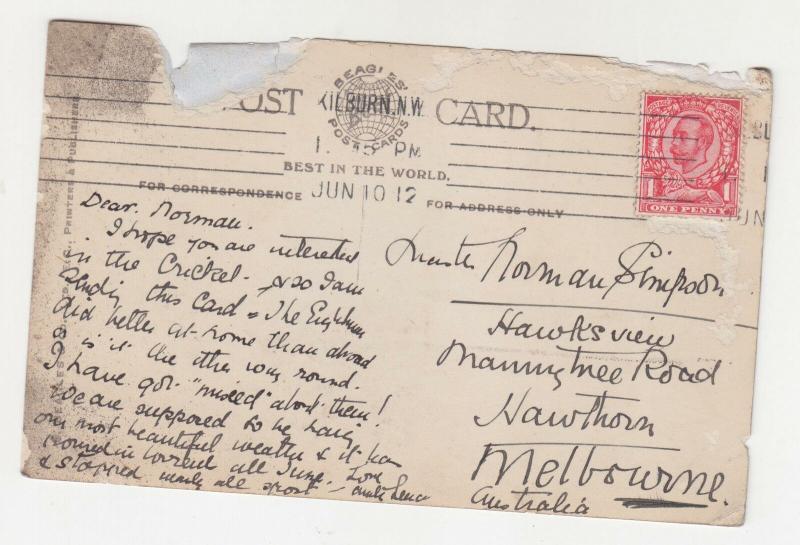 BEAGLES'
POST CARDS
OST CARD.
KILBURN.N.W.
1. 45 PM
JUN 10 12
BEST IN THE WORLD.
FOR CORRESPONDENCE
FOR ADDRESS ONLY
POSTAGE
ONE PENNY
1 1
PRINTERS & PUBLISHERS
Dear. Norman.
I hope you are interested
in the Cricket. so I am
sending this card. The Englishmen
did better at home than abroad
is it the other way round.
I have got "mixed" about them!
We are supposed to be having
our most beautiful weather & it has
poured in torrents all June.
& stopped nearly all sport - Love
Master Norman Simpson
Hawksview
Manningtree Road
Hawthorn
Melbourne.
Australia